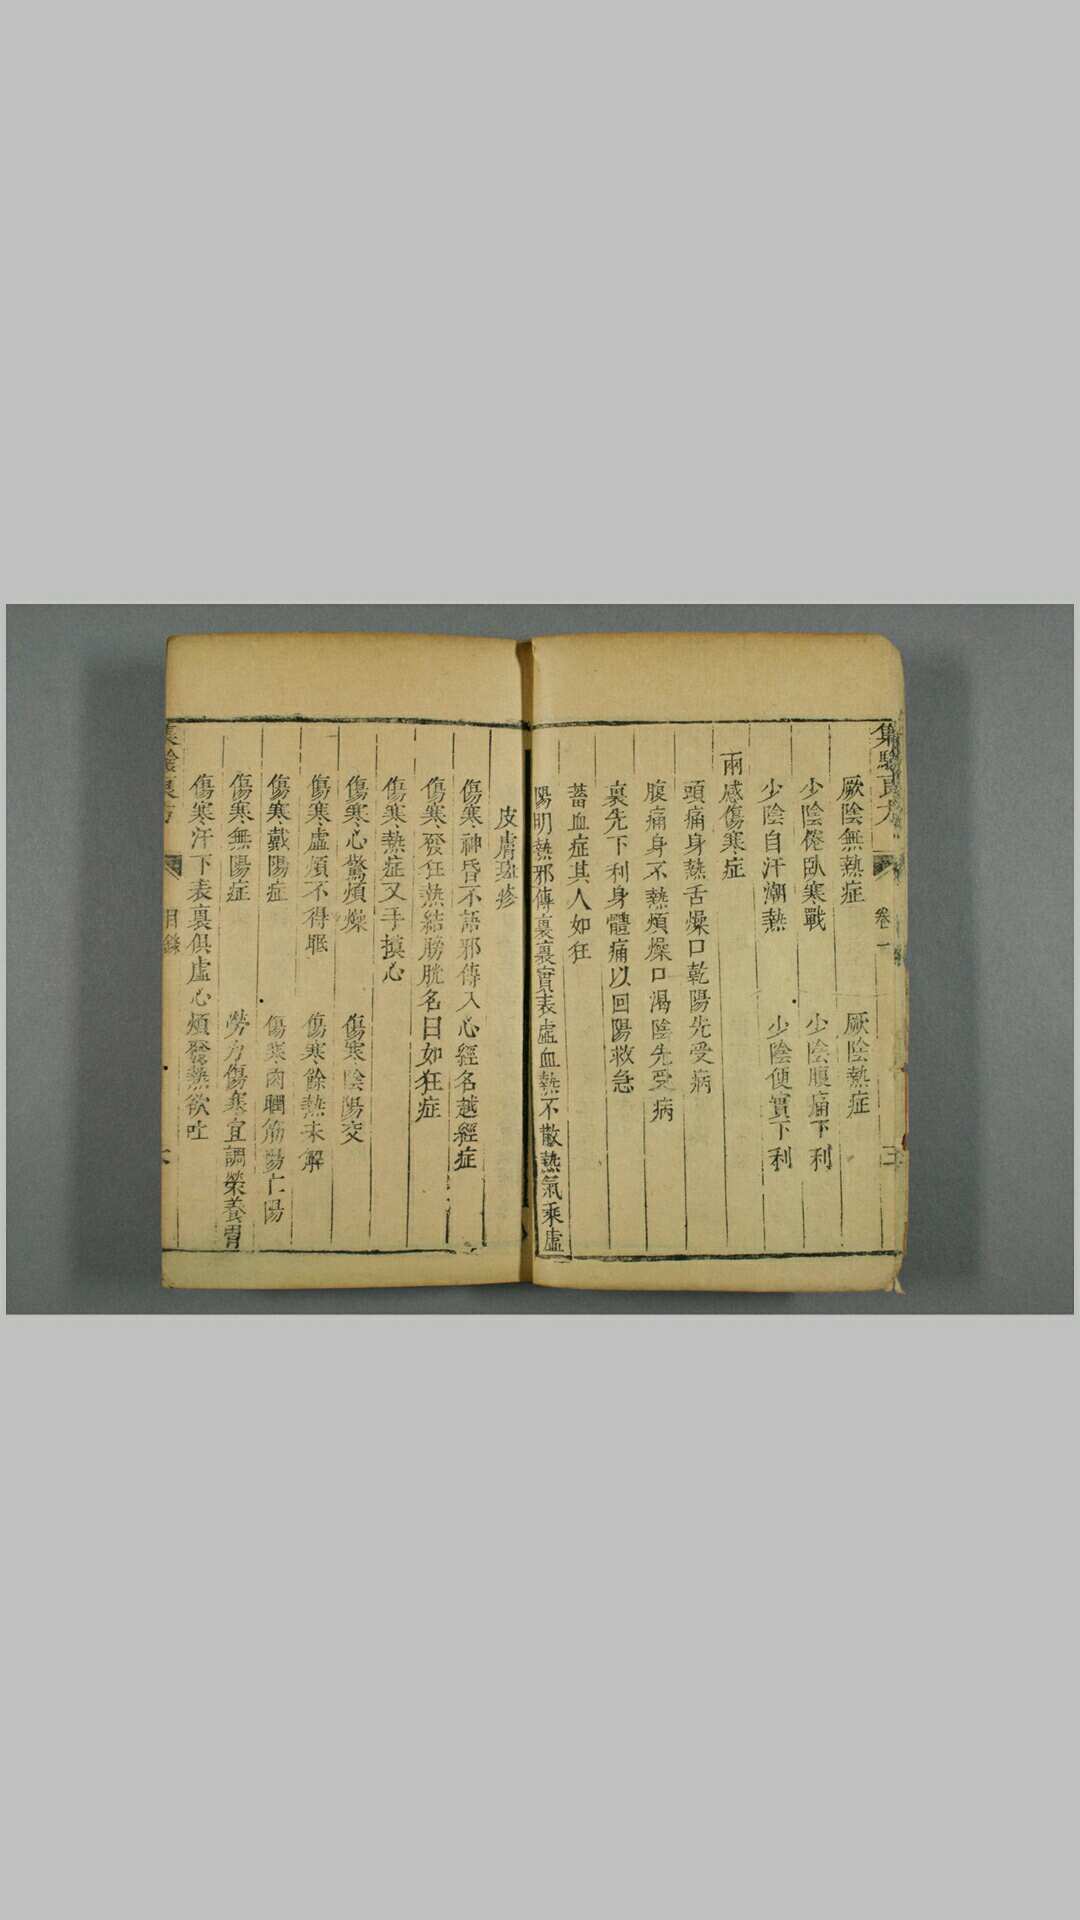 集驗良方
卷一
厥陰無熱症　厥陰熱症
少陰倦臥寒戰　少陰腹痛下利
少陰自汗潮熱　少陰便實下利
兩感傷寒症
頭痛身熱舌燥口乾陽先受病
腹痛身不熱煩燥口渴陰先受病
裏先下利身體痛以回陽救急
蓄血症其人如狂
陽明熱邪傳裏裏實表虛血熱不散熱氣乘虛
皮膚斑疹
傷寒神昏不語邪傳入心經名越經症
傷寒發狂熱結膀胱名曰如狂症
傷寒熱症叉手摸心
傷寒心驚煩燥　傷寒陰陽交
傷寒虛煩不得眠　傷寒餘熱未解
傷寒戴陽症　傷寒肉瞤筋陽亡陽
傷寒無陽症　勞力傷寒宜調榮養胃
傷寒汗下表裏俱虛心煩發熱欲吐
集驗良方
目錄